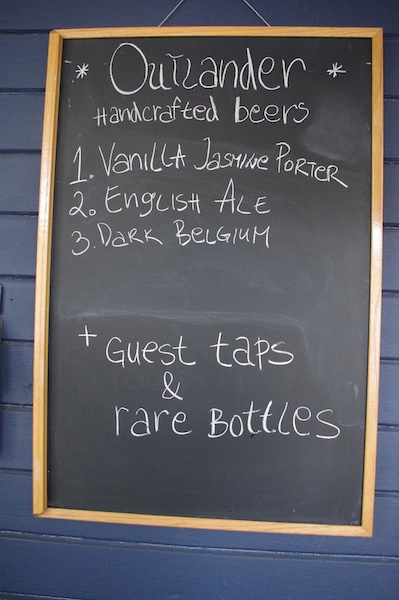 * Outlander *
Handcrafted beers
1. Vanilla Jasmine Porter
2. English Ale
3. Dark Belgium
+ Guest taps
&
rare Bottles